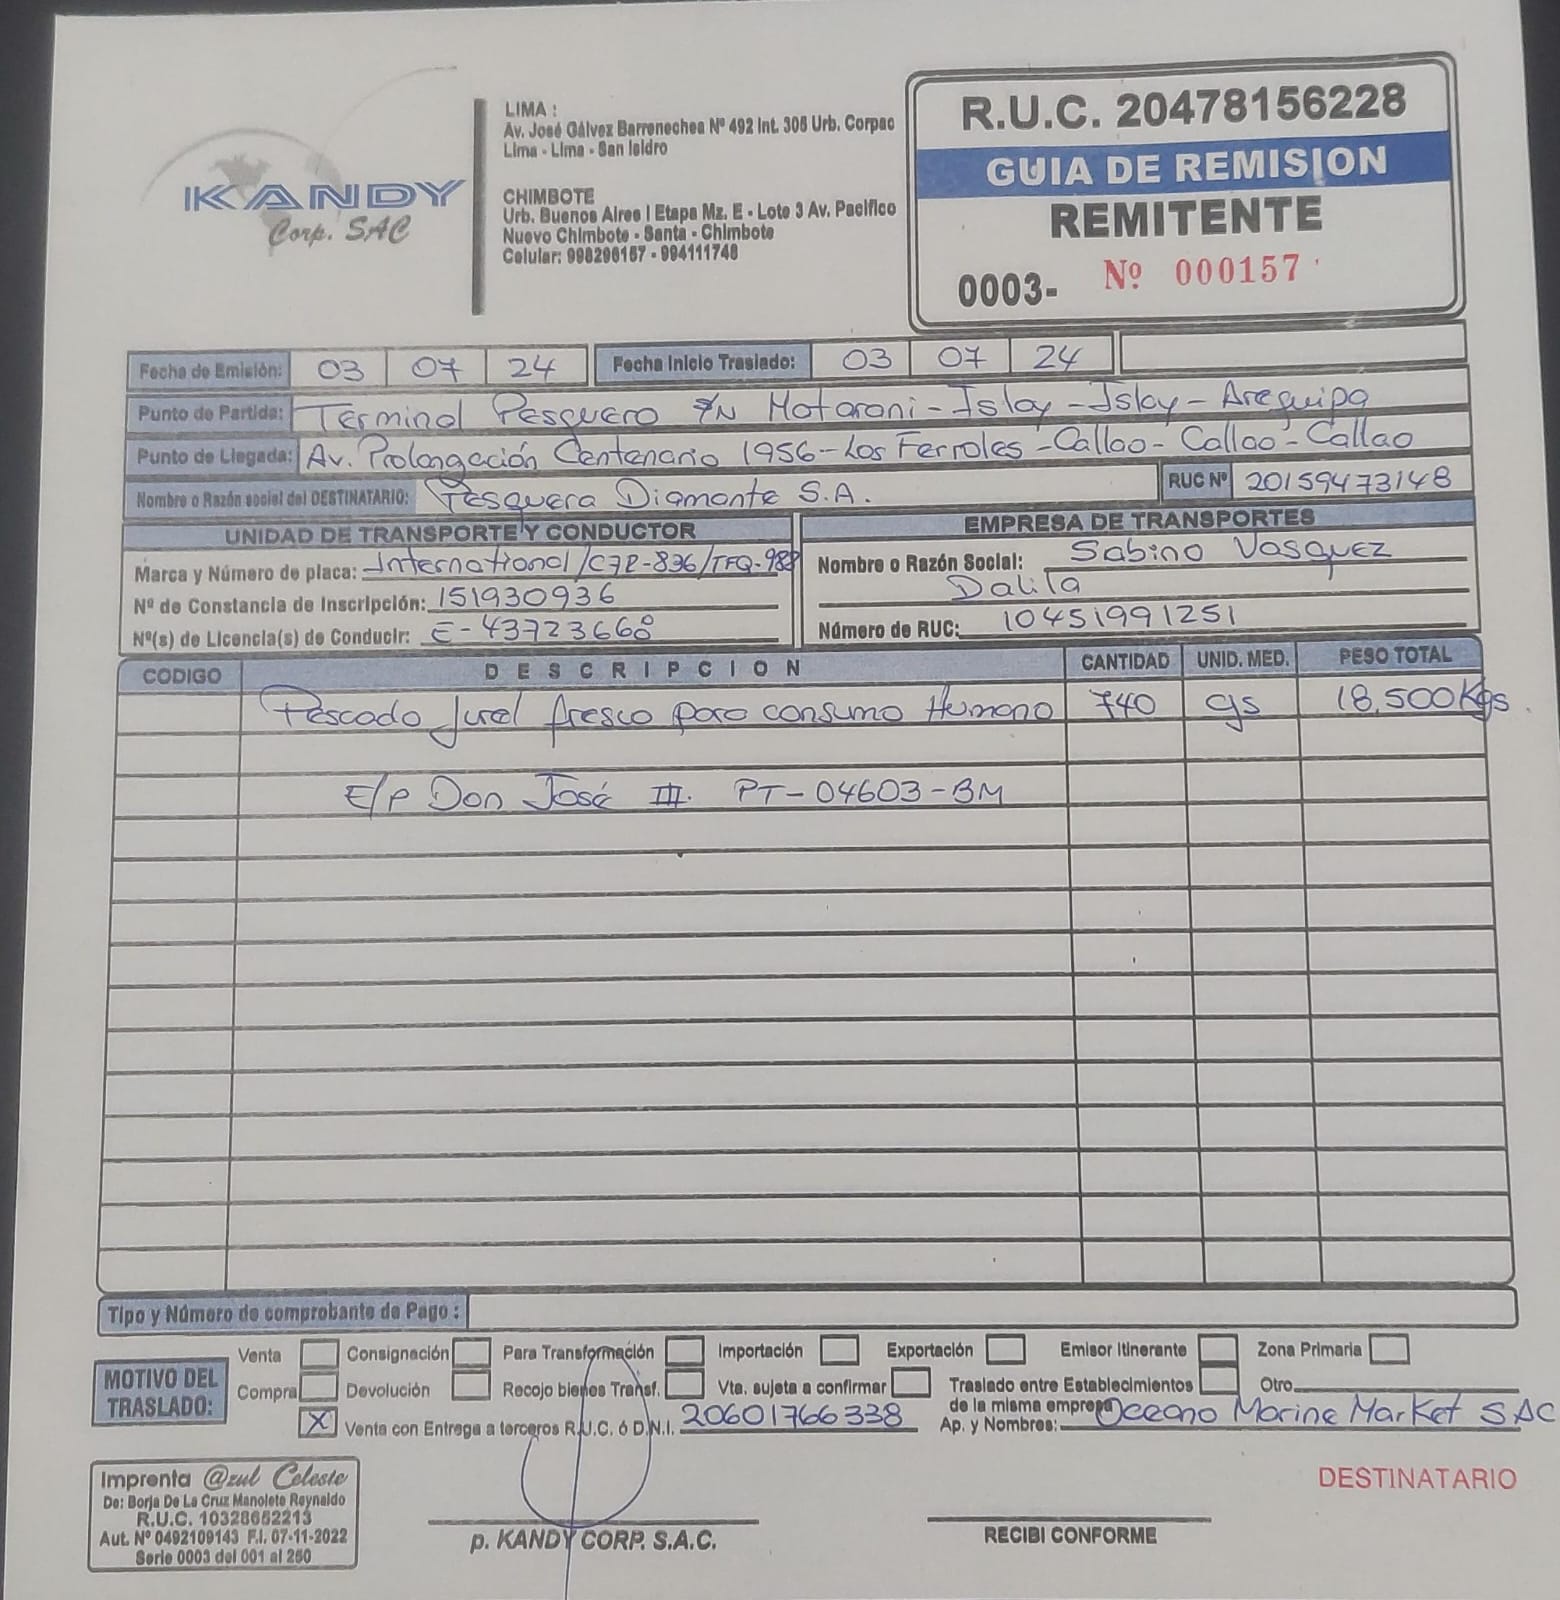 KANDY
Corp. SAC
LIMA :
Av. José Gálvez Barrenechea Nº 492 Int. 305 Urb. Corpac
Lima - Lima - San Isidro
CHIMBOTE
Urb. Buenos Aires I Etapa Mz. E - Lote 3 Av. Pacifico
Nuevo Chimbote - Santa - Chimbote
Celular: 998296157 - 994111748
R.U.C. 20478156228
GUIA DE REMISION
REMITENTE
0003- Nº 000157
Fecha de Emisión: 03 07 24 Fecha Inicio Traslado: 03 07 24
Punto de Partida: Terminal Pesquero S/N Matarani - Islay - Islay - Arequipa
Punto de Llegada: Av. Prolongación Centenario 1956 - Los Ferroles - Callao - Callao - Callao
Nombre o Razón social del DESTINATARIO: Pesquera Diamante S.A. RUC Nº 20159473148
UNIDAD DE TRANSPORTE Y CONDUCTOR
Marca y Número de placa: International / C7P-836 / TFQ-988
Nº de Constancia de Inscripción: 151930936
Nº(s) de Licencia(s) de Conducir: E-43723668
EMPRESA DE TRANSPORTES
Nombre o Razón Social: Sabino Vasquez
Dalila
Número de RUC: 10451991251
CODIGO DESCRIPCION CANTIDAD UNID. MED. PESO TOTAL
Pescado Jurel fresco para consumo Humano 740 gs 18,500 Kgs.
E/P Don José III. PT-04603-BM
Tipo y Número de comprobante de Pago :
MOTIVO DEL TRASLADO:
Venta Consignación Para Transformación Importación Exportación Emisor Itinerante Zona Primaria
Compra Devolución Recojo bienes Transf. Vta. sujeta a confirmar Traslado entre Establecimientos de la misma empresa Otro
X Venta con Entrega a terceros R.U.C. ó D.N.I. 20601766338 Ap. y Nombres: Oceano Marine Market SAC
Imprenta @zul Celeste
De: Borja De La Cruz Manolete Reynaldo
R.U.C. 10328652213
Aut. Nº 0492109143 F.I. 07-11-2022
Serie 0003 del 001 al 250
p. KANDY CORP. S.A.C.
RECIBI CONFORME
DESTINATARIO